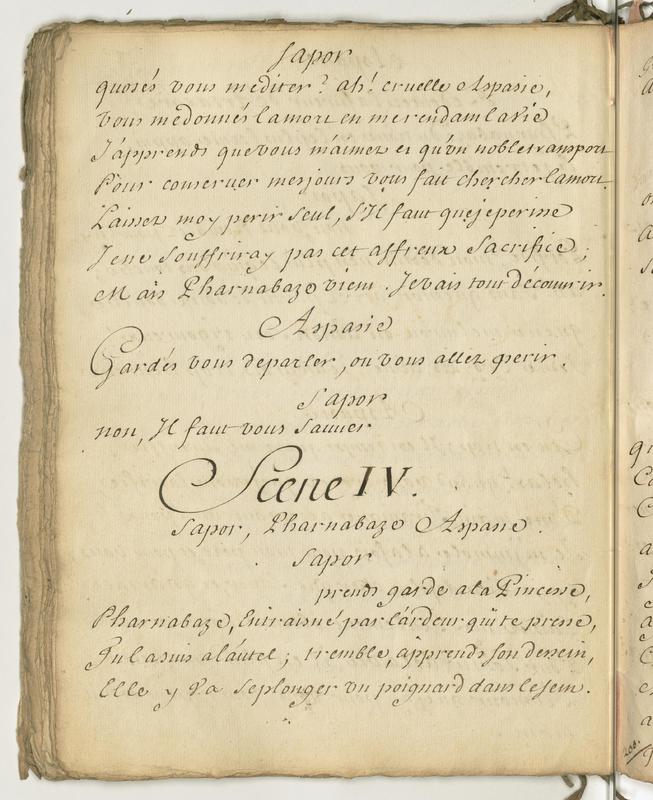 Sapor
quosés vous mediter? ah! cruelle Aspasie,
Vous medonnés lamort en merendant lavie
J'apprends quevous m'aimez et qu'vn nobletransport
Pour conserver mesjours vous fait chercher lamort.
Laissez moy perir seul, s'Il faut quejeperisse
Jene souffriray pas cet affreux sacrifice;
Mais Pharnabaze vient. Jevais tout découvrir.
Aspasie
Gardés vous deparler, ou vous allez perir.
Sapor
non, Il faut vous sauver
Scene IV.
Sapor, Pharnabaze Aspasie.
Sapor
prends garde ala Pincesse,
Pharnabaze, Entraisné par l'ardeur qui te presse,
Tu l'asuis al'autel; tremble, apprends son dessein,
Elle y Va seplonger vn poignard dans lesein.
208.